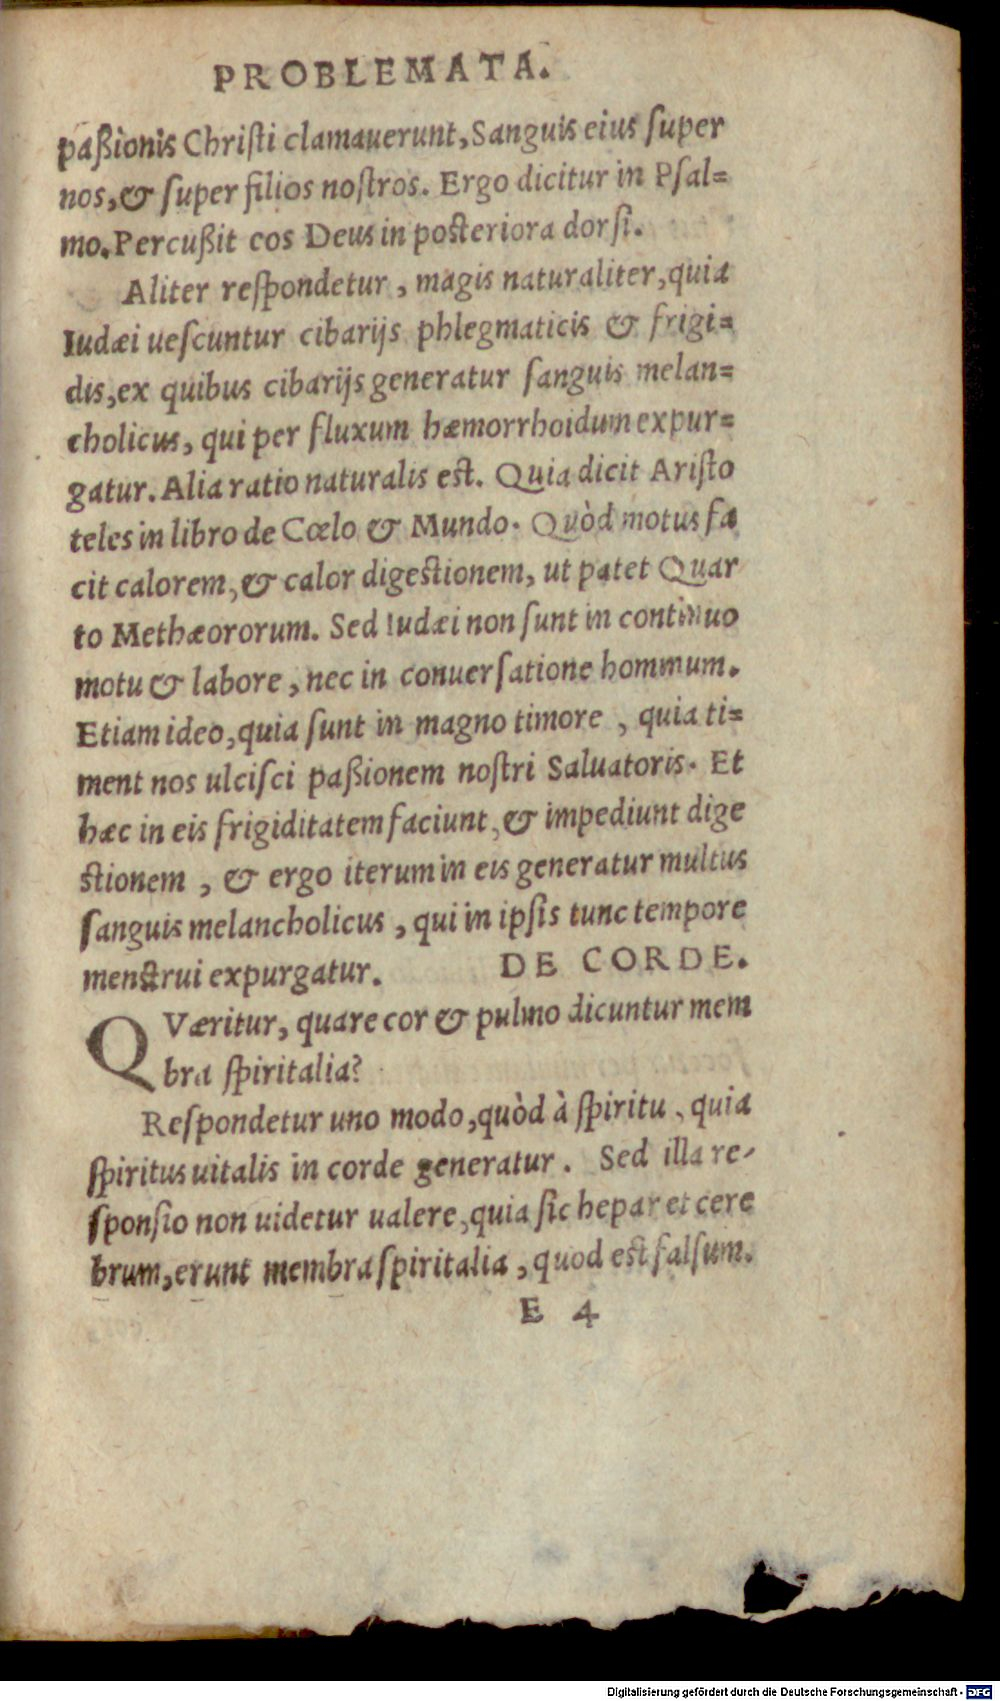 PROBLEMATA.
paßionis Chriſti clamauerunt, Sanguis eius ſuper
nos, & ſuper filios noſtros. Ergo dicitur in Pſal=
mo. Percußit eos Deus in poſteriora dorſi.
Aliter reſpondetur, magis naturaliter, quia
Iudæi ueſcuntur cibarijs phlegmaticis & frigi=
dis, ex quibus cibarijs generatur ſanguis melan=
cholicus, qui per fluxum hæmorrhoidum expur=
gatur. Alia ratio naturalis eſt. Quia dicit Ariſto
teles in libro de Cœlo & Mundo. Quòd motus fa
cit calorem, & calor digeſtionem, ut patet Quar
to Methæororum. Sed Iudæi non ſunt in continuo
motu & labore, nec in conuerſatione hominum.
Etiam ideo, quia ſunt in magno timore, quia ti=
ment nos ulciſci paßionem noſtri Saluatoris. Et
hæc in eis frigiditatem faciunt, & impediunt dige
ſtionem, & ergo iterum in eis generatur multus
ſanguis melancholicus, qui in ipſis tunc tempore
menſtrui expurgatur. DE CORDE.
QVæritur, quare cor & pulmo dicuntur mem
bra ſpiritalia?
Reſpondetur uno modo, quòd à ſpiritu, quia
ſpiritus uitalis in corde generatur. Sed illa re-
ſponſio non uidetur ualere, quia ſic hepar et cere
brum, erunt membra ſpiritalia, quod eſt falſum.
E 4
Digitalisierung gefördert durch die Deutsche Forschungsgemeinschaft - DFG